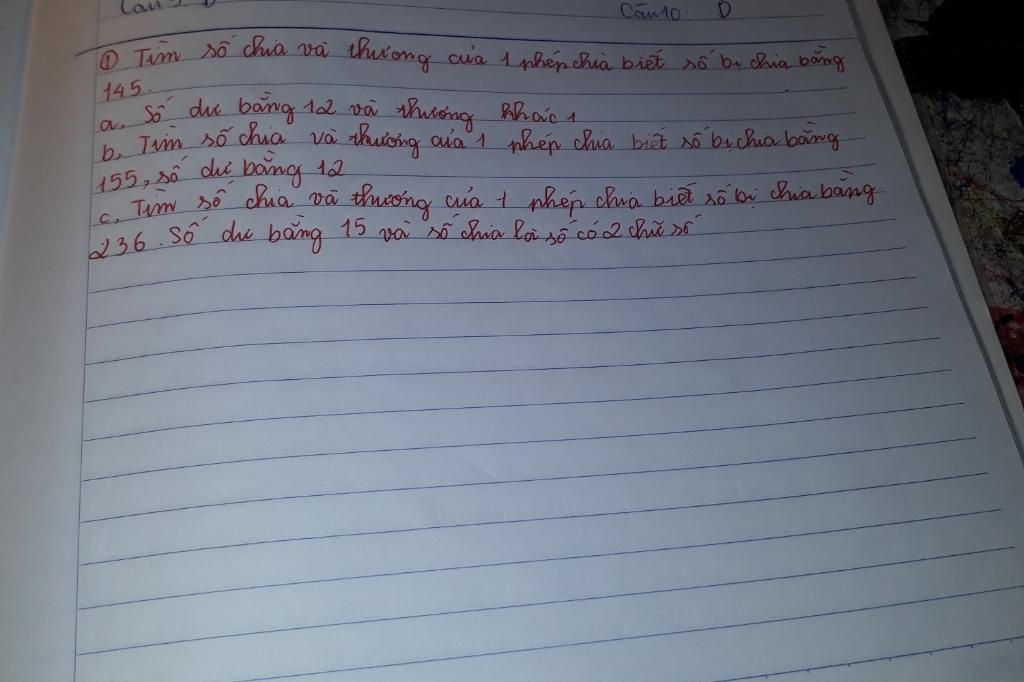 Câu 10: D
① Tìm số chia và thương của 1 phép chia biết số bị chia bằng
145.
a, Số dư bằng 12 và thương khác 1
b, Tìm số chia và thương của 1 phép chia biết số bị chia bằng
155, số dư bằng 12
c, Tìm số chia và thương của 1 phép chia biết số bị chia bằng
236. Số dư bằng 15 và số chia là số có 2 chữ số